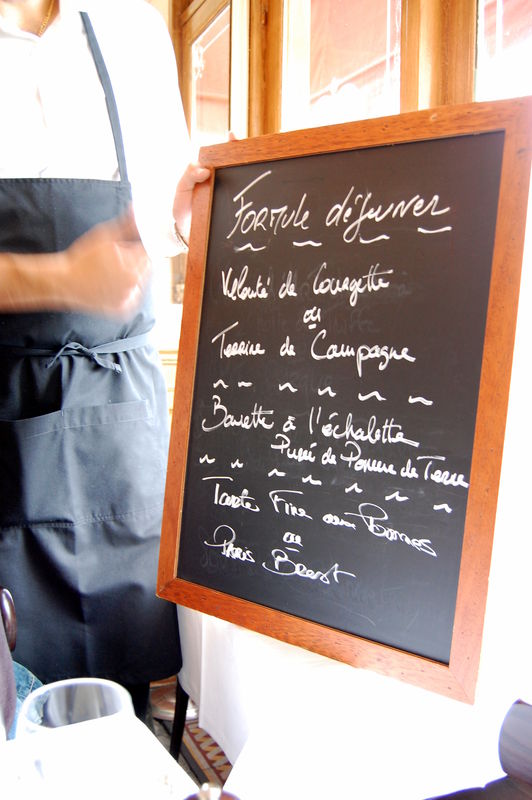 Formule déjeuner
Velouté de Courgette
ou
Terrine de Campagne
Bavette à l'échalette
Purée de Pomme de Terre
Tarte Fine aux Pommes
ou
Paris Brest